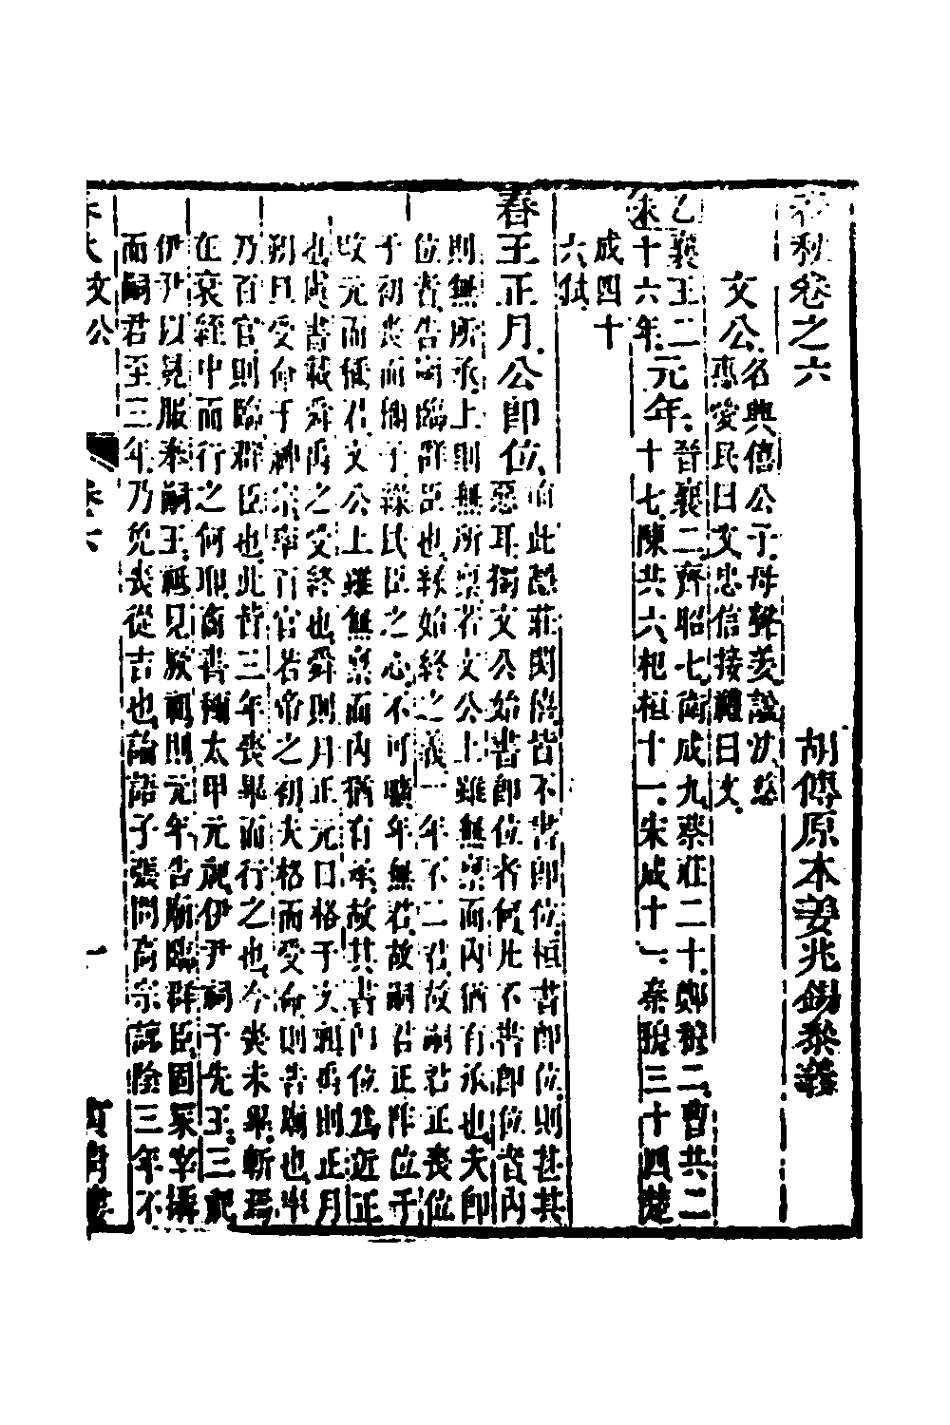 春秋卷之六
胡傳原本姜兆錫參義
文公名興僖公子母聲姜諡法慈
惠愛民曰文忠信接禮曰文
乙未
襄王二十六年元年晉襄二齊昭七衛成九蔡莊二十鄭穆二曹共二
十七陳共六杞桓十一宋成十一秦穆三十四楚
成四十
六僖
春王正月公即位
前此隱莊閔僖皆不書即位桓書即位則甚其
惡耳獨文公始書即位者何凡不書即位者內
則無所承上則無所稟若文公上雖無稟而內猶有承也夫即
位者告廟臨群臣也緣始終之義一年不二君故嗣君正喪位
于初喪而稱子緣民臣之心不可曠年無君故嗣君正阼位于
改元而稱君文公上雖無稟而內猶有承故其書即位為近正
也虞書載舜禹之受終也舜則月正元日格于文祖禹則正月
朔旦受命于神宗率百官若帝之初夫格而受命則告廟也率
乃百官則臨群臣也此皆三年喪畢而行之也今喪未畢斬焉
在衰絰中而行之何耶商書稱太甲元祀伊尹祠于先王三祀
伊尹以冕服奉嗣王祗見厥祖則元年告廟臨群臣固冢宰攝
而嗣君至三年乃免喪從吉也論語子張問高宗諒陰三年不
文公
卷六
一